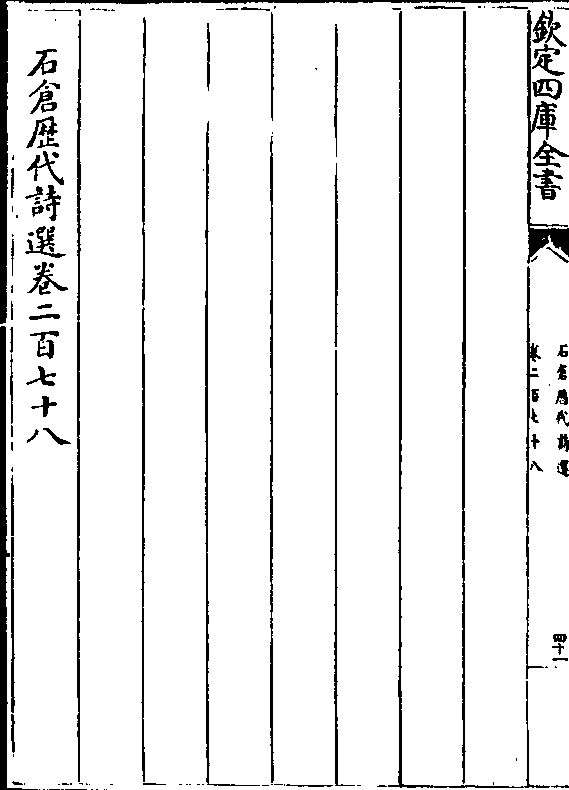 欽定四庫全書
石倉歷代詩選
卷二百七十八
四十一
石倉歷代詩選卷二百七十八